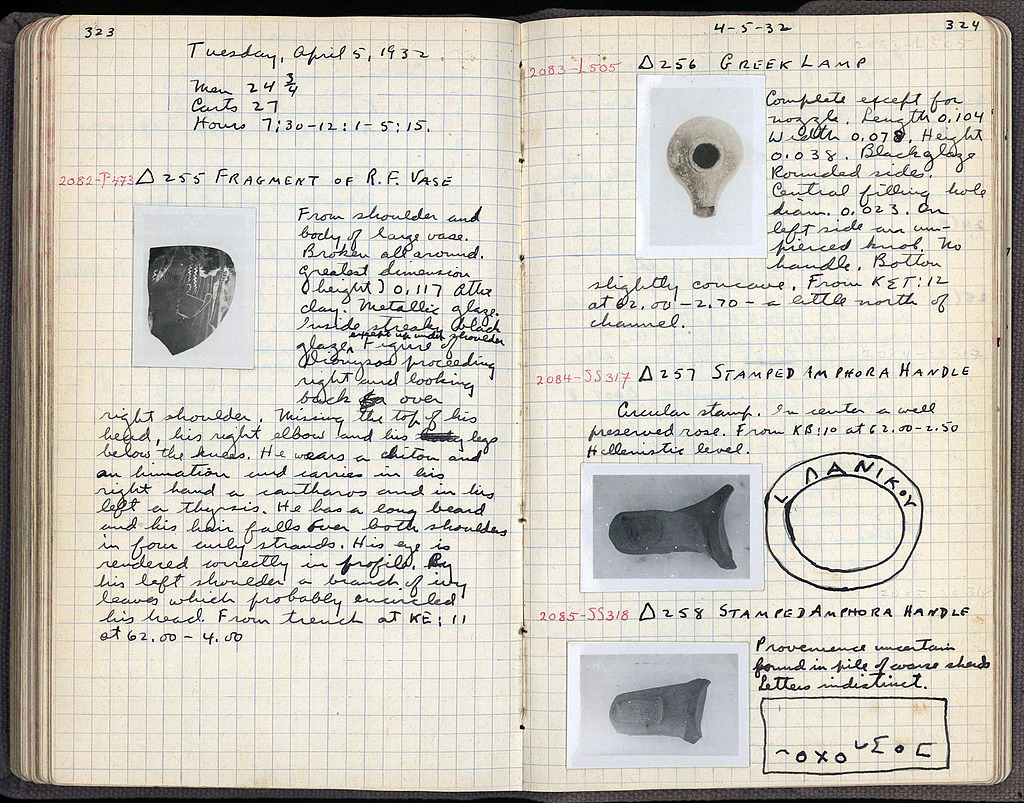 323
Tuesday, April 5, 1932
Men 24 3/4
Carts 27
Hours 7:30-12:1-5:15.
2082-P473 Δ 255 FRAGMENT OF R.F. VASE
From shoulder and
body of large vase.
Broken all around.
Greatest dimension
(height) 0,117 Attic
clay. Metallic glaze.
Inside streaky black
except up under shoulder
glaze. Figure of
Dionysos proceeding
right and looking
back over
right shoulder. Missing the top of his
head, his right elbow and his legs
below the knees. He wears a chiton and
an himation and carries in his
right hand a cantharos and in his
left a thyrsis. He has a long beard
and his hair falls over both shoulders
in four curly strands. His eye is
rendered correctly in profile. By
his left shoulder a branch of ivy
leaves which probably encircled
his head. From trench at KE:11
at 62.00 - 4.00
4-5-32 324
2083-L505 Δ 256 GREEK LAMP
Complete except for
nozzle. Length 0.104
Width 0.078. Height
0.038. Black glaze
Rounded sides.
Central filling hole
diam. 0.023. On
left side an un-
pierced knob. No
handle. Bottom
slightly concave. From KET:12
at 62.00 - 2.70 - a little north of
channel.
2084-SS317 Δ 257 STAMPED AMPHORA HANDLE
Circular stamp. In center a well
preserved rose. From KB:10 at 62.00-2.50
Hellenistic level.
ΛΑΝΙΚΟΥ
2085-SS318 Δ 258 STAMPED AMPHORA HANDLE
Provenience uncertain
found in pile of coarse sherds
Letters indistinct.